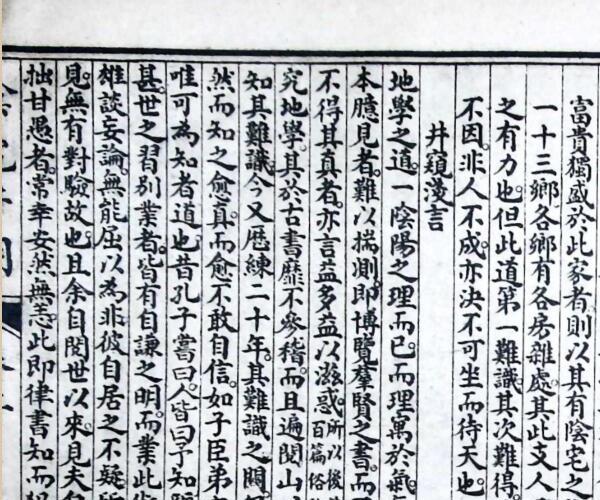 富貴獨盛於此家者則以其有陰宅之
一十三鄉各鄉有各房雜處其此支人
之有力也但此道第一難識其次難得
不因非人不成亦決不可坐而待天也
井窺漫言
地學之道一陰陽之理而已而理寓於氣
本臆見者難以揣測即博覽羣賢之書而
不得其真者亦言益多益以滋惑所以後
百篇俗
究地學其於古書靡不參稽而且遍閱山
知其難識今又歷練二十年其難識之關
然而知之愈真而愈不敢自信如子臣弟
唯可為知者道也昔孔子嘗曰人皆曰予知
甚世之習別業者皆有自謙之明而業此
雄談妄論無能屈以為非彼自居之不疑
見無有對驗故也且余自閱世以來見夫
拙甘愚者常幸安然無恙此即律書知而